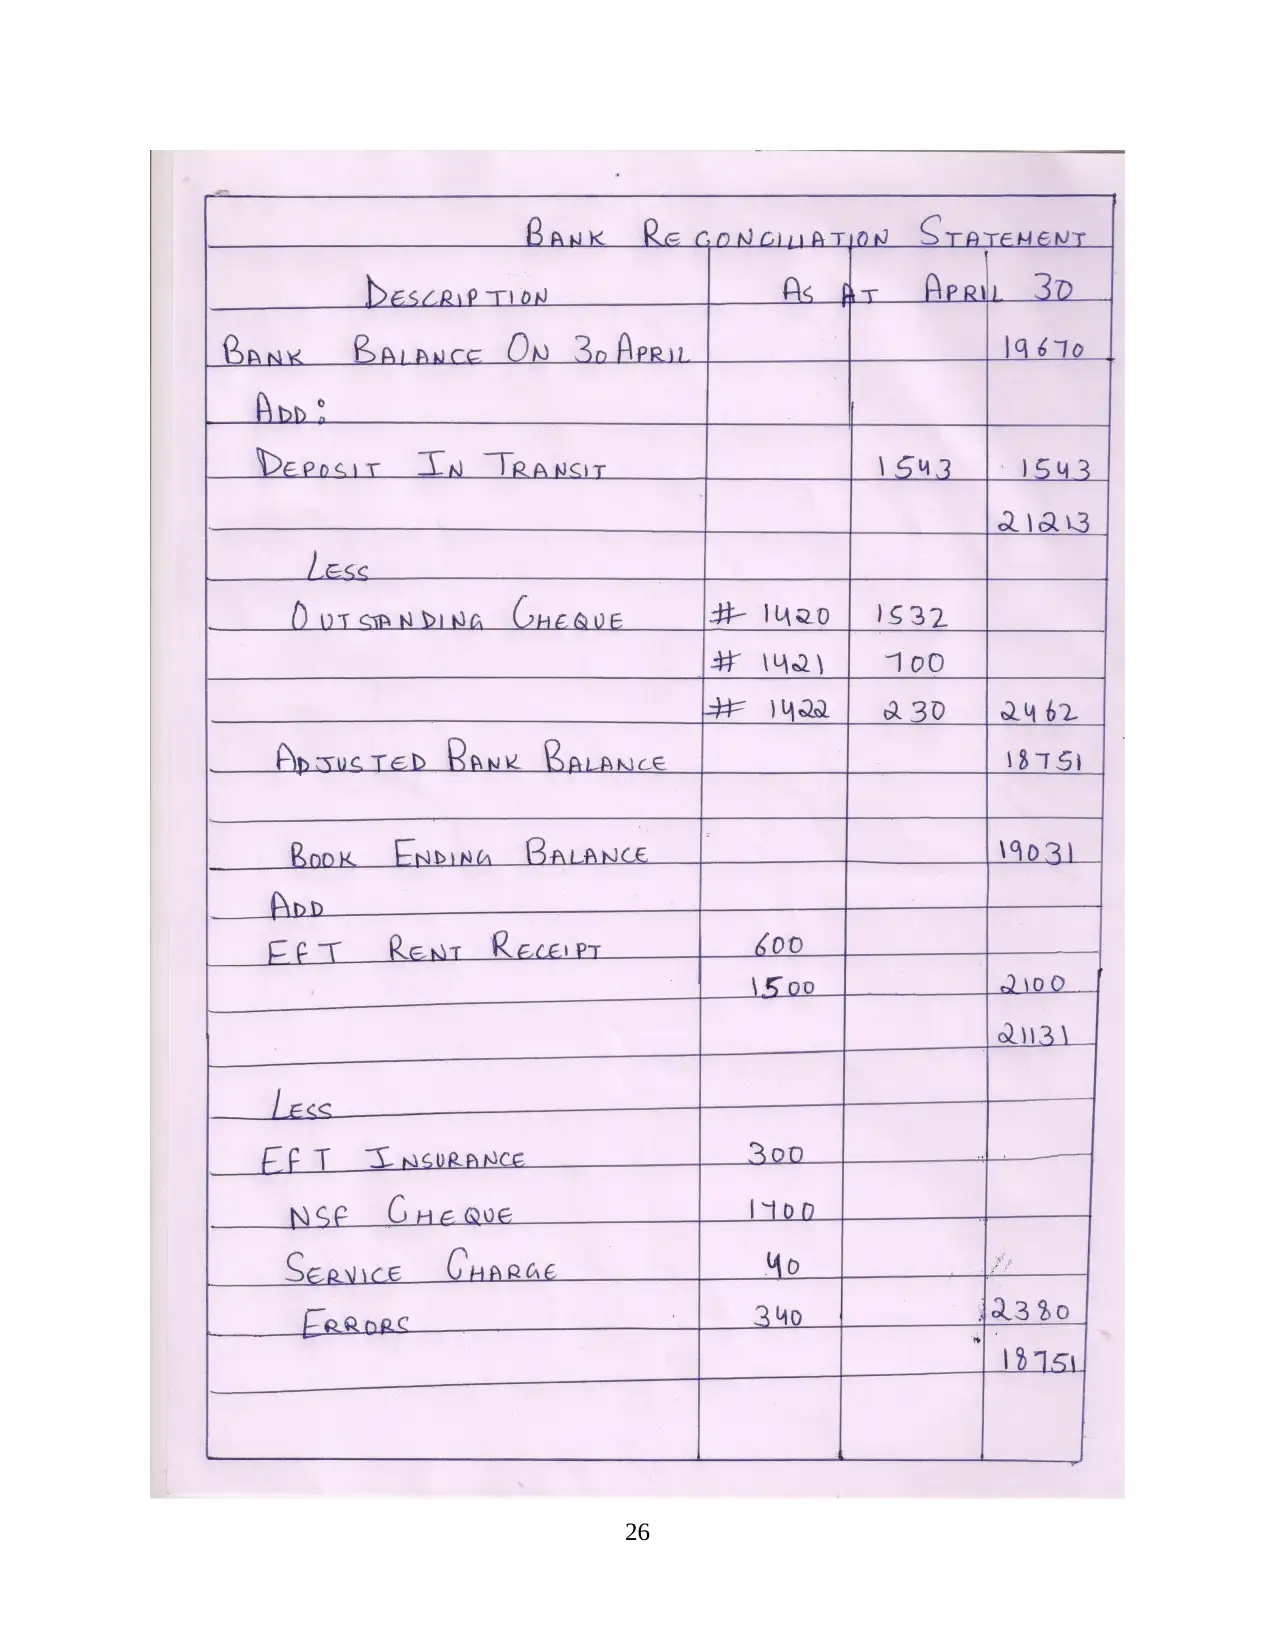 BANK RECONCILIATION STATEMENT
DESCRIPTION AS AT APRIL 30
BANK BALANCE ON 30 APRIL 19670
ADD:
DEPOSIT IN TRANSIT 1543 1543
21213
LESS
OUTSTANDING CHEQUE # 1420 1532
# 1421 700
# 1422 230 2462
ADJUSTED BANK BALANCE 18751
BOOK ENDING BALANCE 19031
ADD
EFT RENT RECEIPT 600
1500 2100
21131
LESS
EFT INSURANCE 300
NSF CHEQUE 1700
SERVICE CHARGE 40
ERRORS 340 2380
18751
26